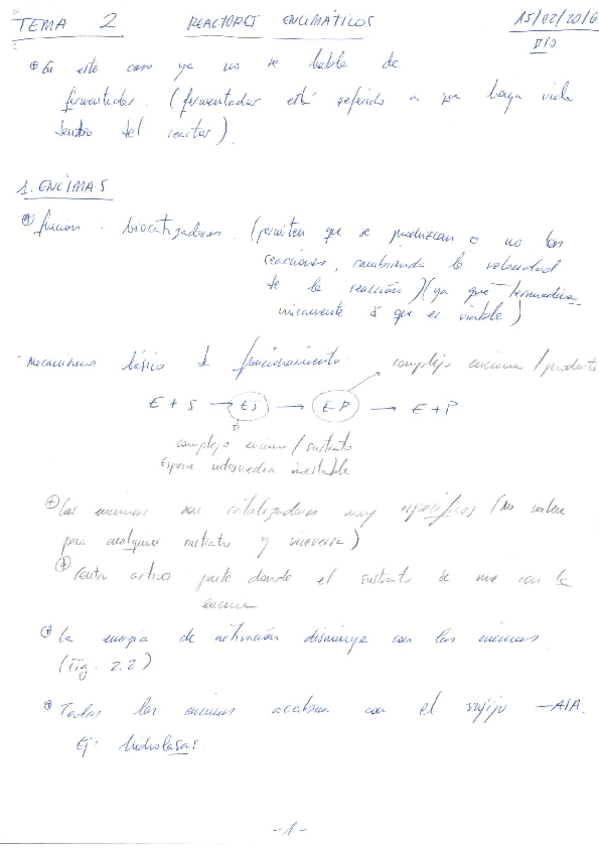 TEMA 2 REACTORES ENCIMÁTICOS 15/02/2016
* En este caso ya no se habla de
fermentador. (fermentador está referido a que haya vida
dentro del reactor).
1. ENCIMAS
* función: biocatizadores. (permiten que se produzcan o no las
reacciones, cambiando la velocidad
de la reacción) (ya que termodiná-
micamente que es viable)
· Mecanismo básico de funcionamiento: complejo encima/producto
E + S → ES → EP → E + P
complejo encima/sustrato
Especie intermedia inestable
* Las encimas son catalizadores muy específicos (No valen
para cualquier sustrato y viceversa)
* centro activo: parte donde el sustrato se une con la
encima
* La energía de activación disminuye con las encimas.
(Fig. 2.2)
* Todas las encimas acaban con el sufijo -ASA.
Ej: hidrolasas.
-1-